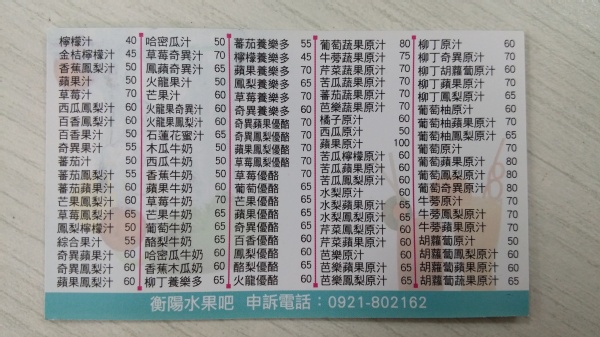 檸檬汁 40
金桔檸檬汁 45
香蕉鳳梨汁 50
蘋果汁 50
草莓汁 70
西瓜鳳梨汁 60
百香鳳梨汁 60
百香果汁 50
奇異果汁 55
蕃茄汁 50
蕃茄鳳梨汁 60
蕃茄蘋果汁 60
芒果鳳梨汁 60
草莓鳳梨汁 65
鳳梨檸檬汁 50
綜合果汁 55
奇異蘋果汁 60
奇異鳳梨汁 60
蘋果鳳梨汁 60
哈密瓜汁 50
草莓奇異汁 70
鳳蘋奇異汁 65
火龍果汁 50
芒果汁 60
火龍果奇異汁 60
火龍果鳳梨汁 60
石蓮花蜜汁 65
木瓜牛奶 50
西瓜牛奶 50
香蕉牛奶 50
蘋果牛奶 60
草莓牛奶 70
芒果牛奶 65
葡萄牛奶 65
酪梨牛奶 65
哈密瓜牛奶 60
香蕉木瓜奶 60
柳丁養樂多 65
蕃茄養樂多 55
檸檬養樂多 45
蘋果養樂多 70
鳳梨養樂多 65
草莓養樂多 70
奇異養樂多 60
奇異蘋果優酪 70
奇異鳳梨優酪 70
蘋果鳳梨優酪 70
草莓鳳梨優酪 70
草莓優酪 70
芒果優酪 65
葡萄優酪 65
蘋果優酪 65
奇異優酪 65
百香優酪 60
鳳梨優酪 60
酪梨優酪 65
火龍優酪 60
葡萄蔬果原汁 80
牛蒡蔬果原汁 75
芹菜蔬果原汁 70
苦瓜蔬果原汁 70
蕃茄蔬果原汁 70
芭樂蔬果原汁 70
橘子原汁 60
西瓜原汁 50
蘋果原汁 100
苦瓜檸檬原汁 60
苦瓜蘋果原汁 60
苦瓜鳳梨原汁 60
水梨原汁 60
水梨蘋果原汁 65
水梨鳳梨原汁 65
芹菜鳳梨原汁 60
芹菜蘋果原汁 60
芭樂原汁 60
芭樂蘋果原汁 65
芭樂鳳梨原汁 65
柳丁原汁 60
柳丁奇異原汁 70
柳丁胡蘿蔔原汁 60
柳丁蘋果原汁 70
柳丁鳳梨原汁 65
葡萄柚原汁 60
葡萄柚蘋果原汁 70
葡萄柚鳳梨原汁 65
葡萄原汁 70
葡萄蘋果原汁 80
葡萄鳳梨原汁 80
葡萄奇異原汁 80
牛蒡原汁 70
牛蒡鳳梨原汁 70
牛蒡蘋果原汁 70
胡蘿蔔原汁 50
胡蘿蔔鳳梨原汁 60
胡蘿蔔蘋果原汁 60
胡蘿蔔蔬果原汁 65
衡陽水果吧 申訴電話：0921-802162